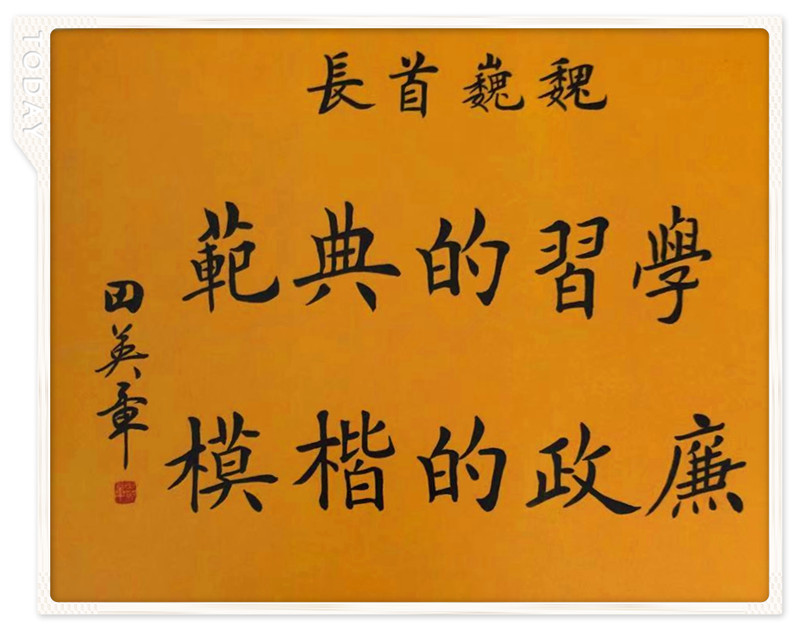 魏巍首長
學習的典範
廉政的楷模
田英章
TODAY